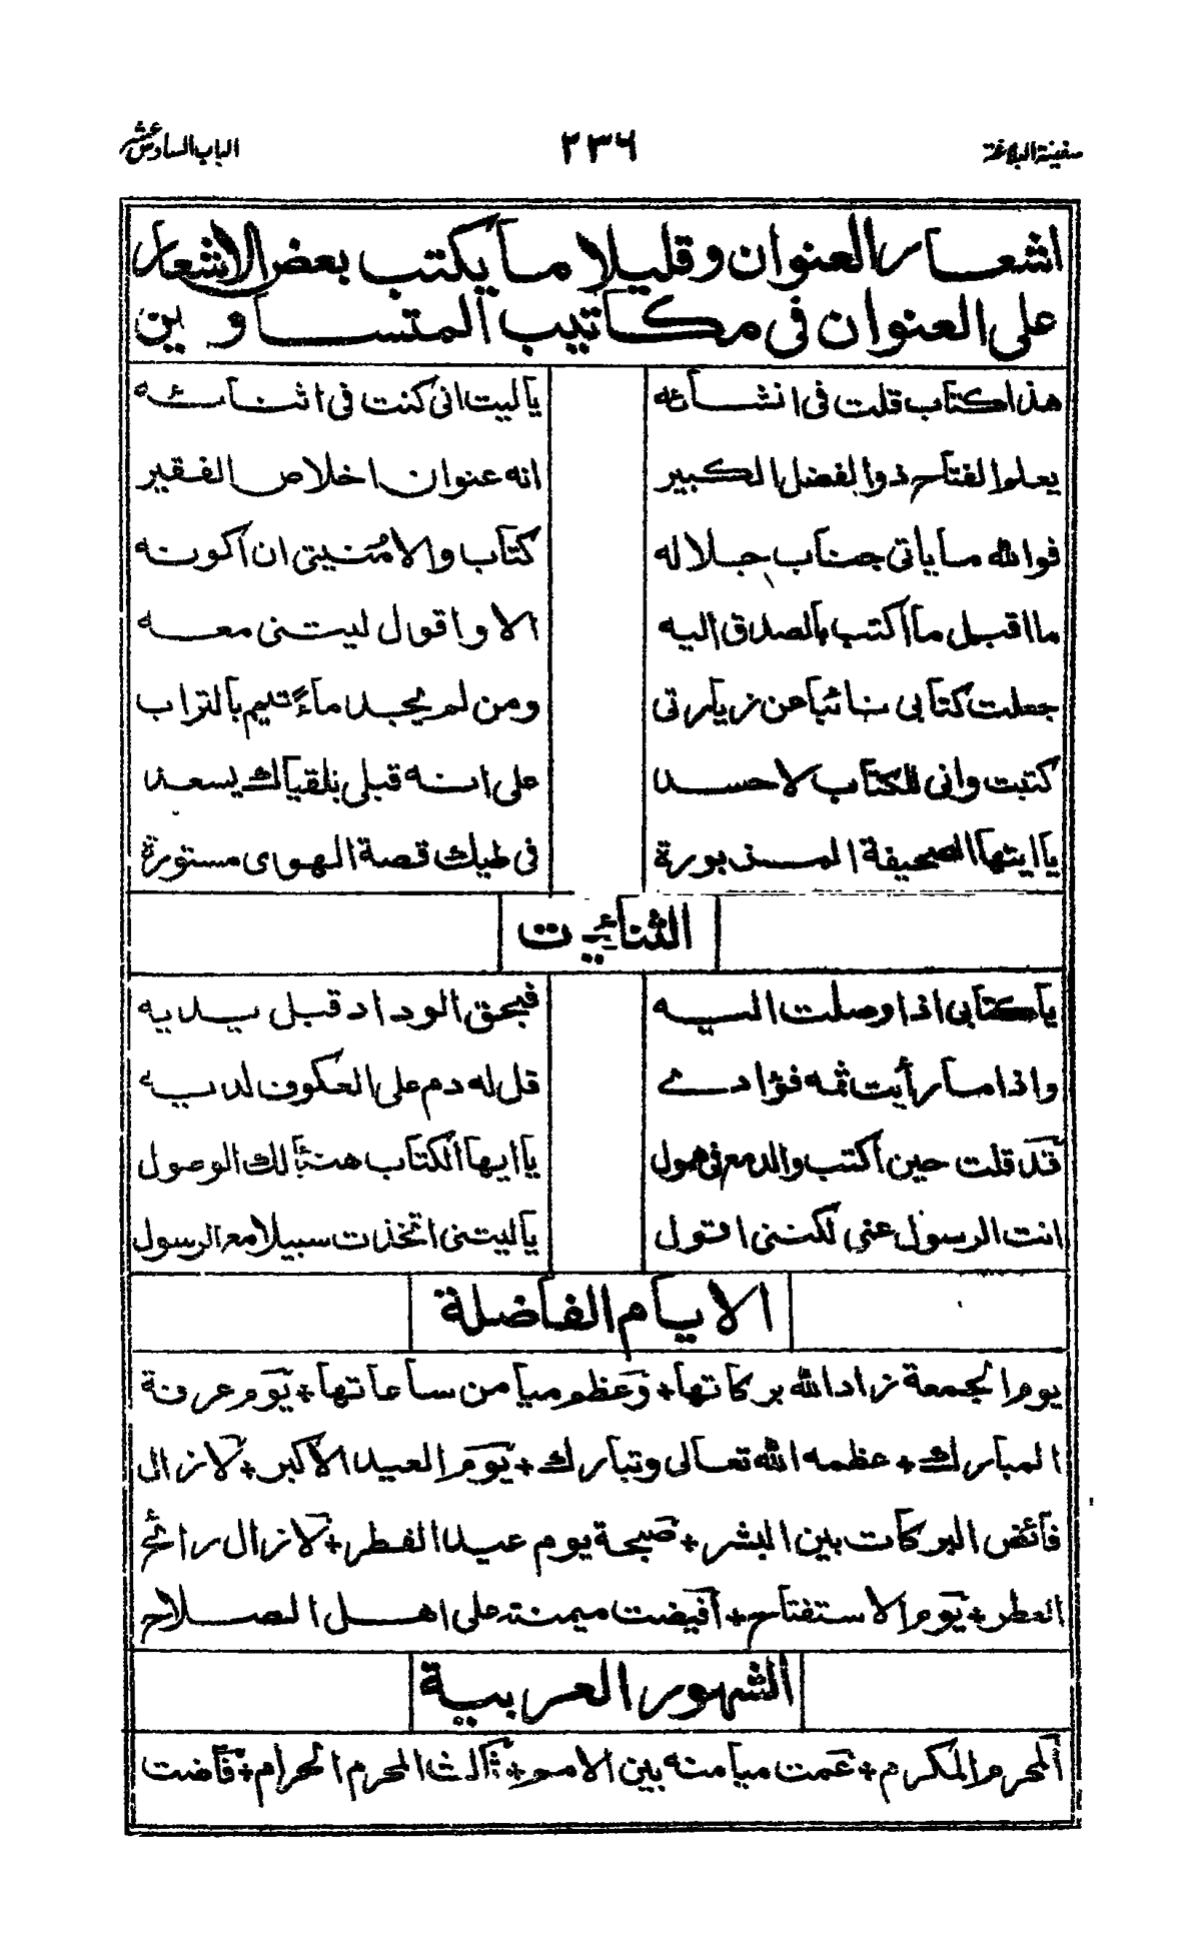 سفينة البلاغة ٢٣٦ الباب السادس عشر
اشعار العنوان وقليلا ما يكتب بعض الاشعار
على العنوان فى مكاتيب المتساوين
هذا كتاب قلت فى انشائه يا ليت انى كنت فى اثنائه
يعلوا لفتاح ذو الفضل الكبير انه عنوان اخلاص الفقير
فوالله ما ياتى جناب جلاله كتاب والا مُنيتى ان اكونه
ما اقبل ما اكتب بالصدق اليه الا واقول ليتنى معه
جعلت كتابى نائبا عن زيارتى ومن لم يجد ماءً تيمم بالتراب
كتبت وانى للكتاب لاحسد على انه قبلى بلقياك يسعد
يا ايتها الصحيفة المزبورة فى طيك قصة الهوى مستورة
الثنائيت
يا كتابى اذا وصلت اليه فبحق الوداد قبل يديه
واذا ما رأيت ثمه فؤادى قل له دم على العكوف لديه
قد قلت حين اكتب والدمع فى همول يا ايها الكتاب هنئا لك الوصول
انت الرسول عنى لكننى اقول يا ليتنى اتخذت سبيلا مع الرسول
الايام الفاضلة
يوم الجمعة زاد الله بركاتها + وَعظم ميامن ساعاتها + يَوم عرفة
المبارك + عظمه الله تعالى وتبارك + يَوم العيد الاكبر + لازال
فائض البركات بين البشر + صَبيحة يوم عيد الفطر + لازال رائح
العطر + يَوم الاستفتاح + اَفيضت ميمنته على اهل الصلاح
الشهور العربية
اَلمحرم المكرم + عَمت ميامنه بين الامم + ثالث المحرم الحرام + فَاضت